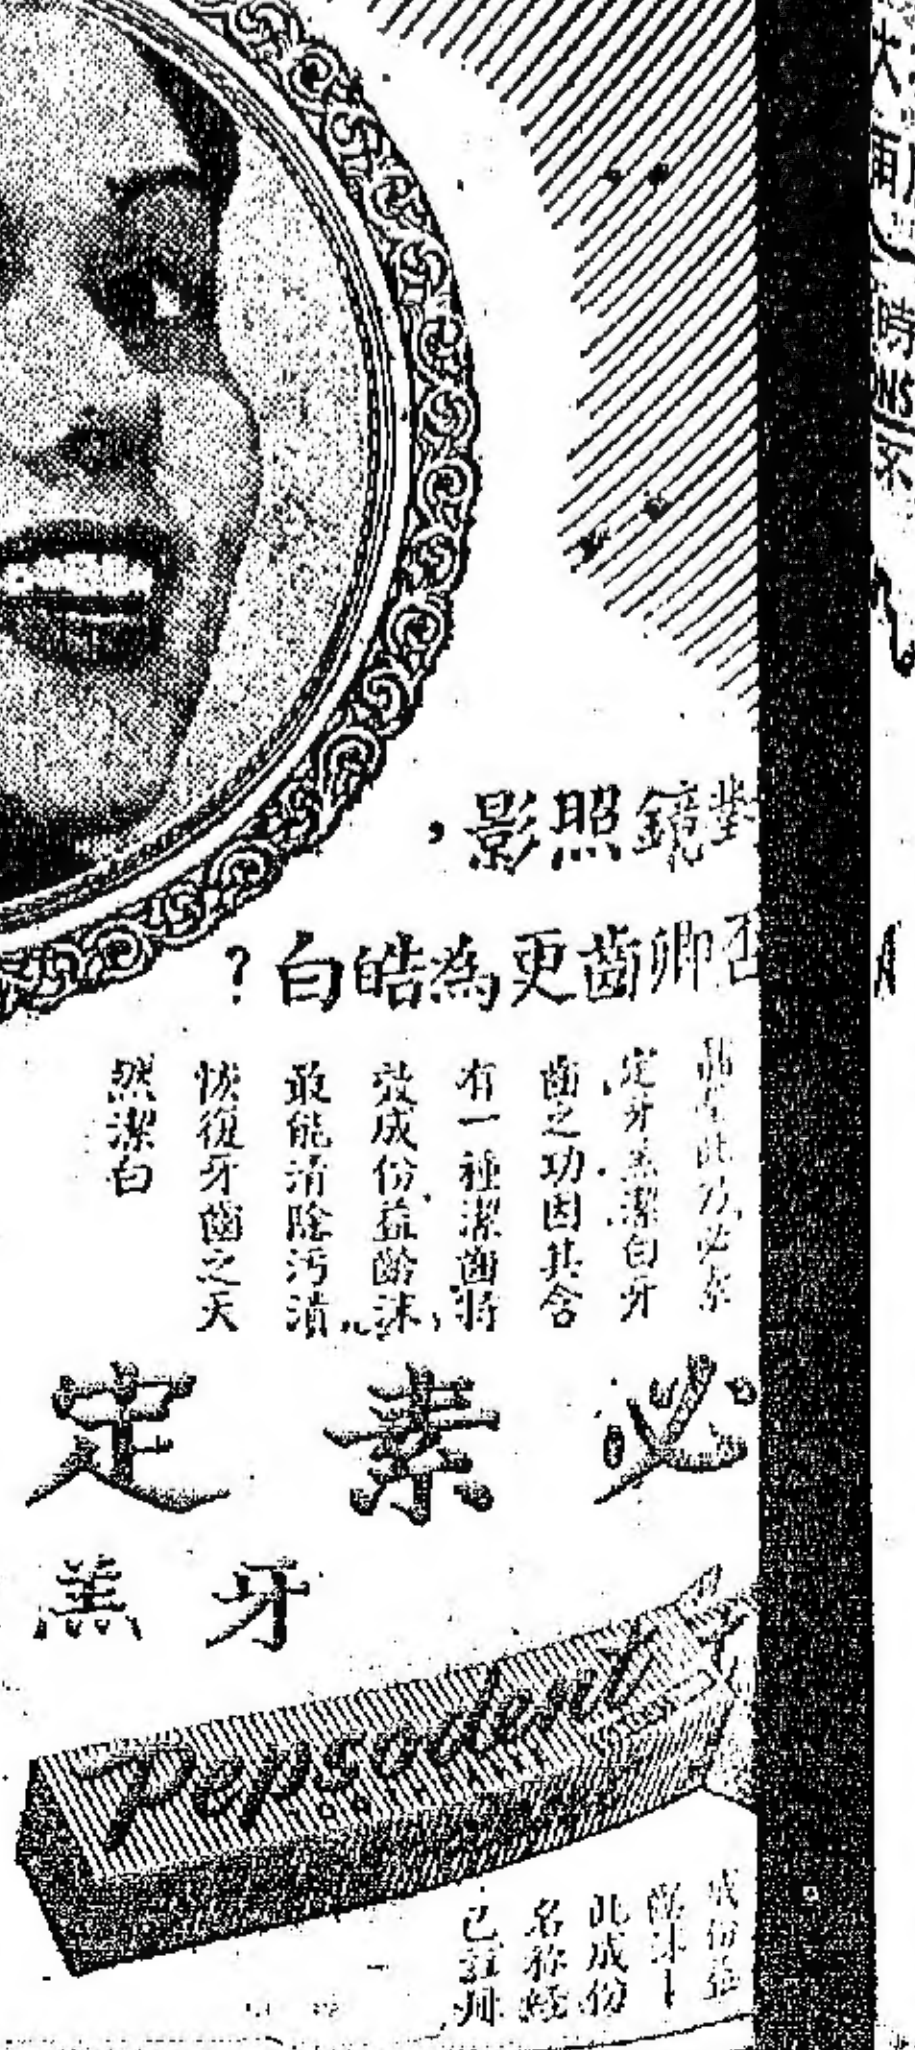 對鏡照影，
否卿齒更為皓白？
此乃必素
定牙羔潔白牙
齒之功因其含
有一種潔齒特
效成份益齡沫
最能清除污漬
恢復牙齒之天
然潔白
必素定
牙羔
Pepsodent
成份益
齡沫—
此成份
名称經
已註冊